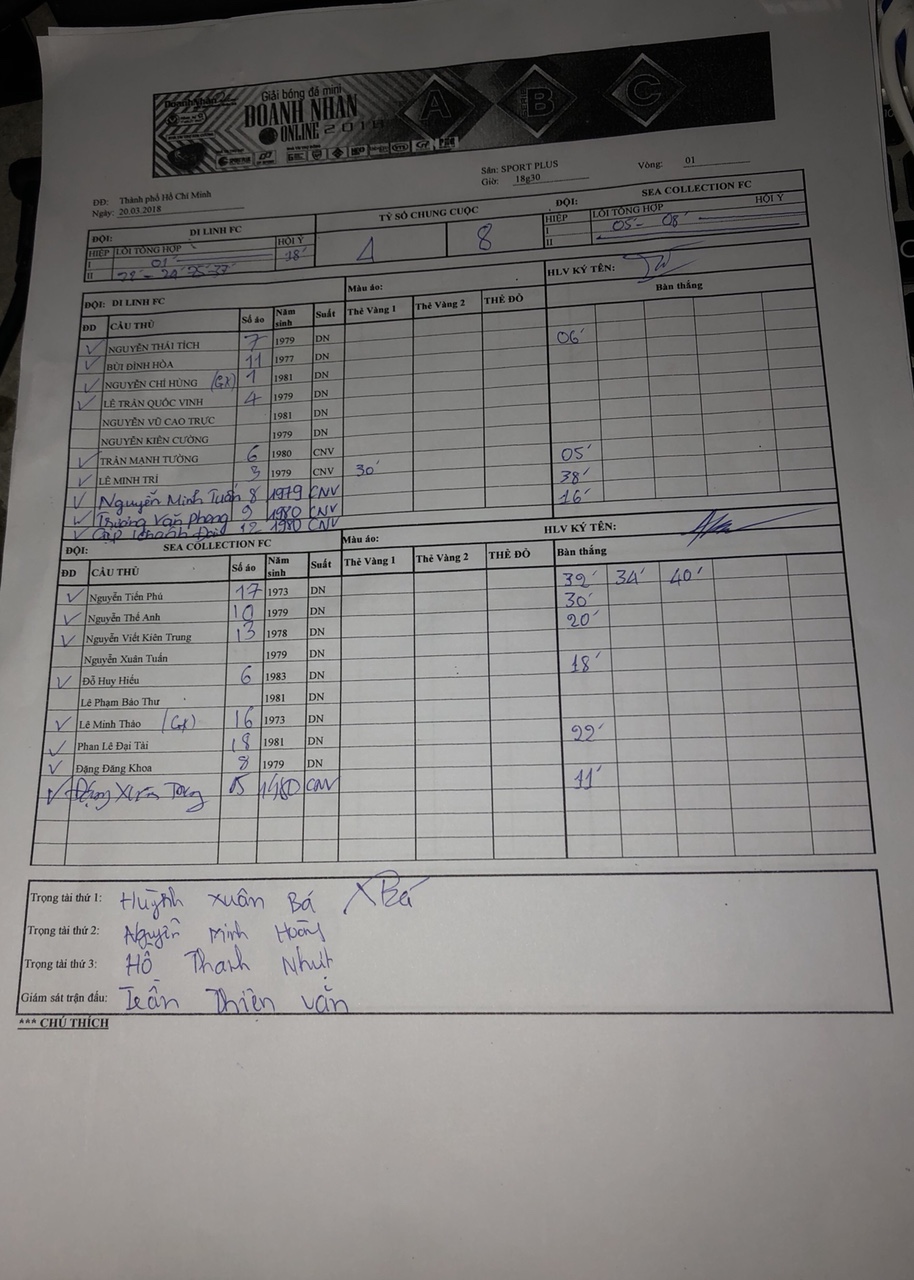 Giải bóng đá mini
DOANH NHÂN
ONLINE 2018
A B C
Sân: SPORT PLUS Vòng: 01
Giờ: 18g30
ĐĐ: Thành phố Hồ Chí Minh
Ngày: 20.03.2018
ĐỘI: DI LINH FC TỶ SỐ CHUNG CUỘC ĐỘI: SEA COLLECTION FC
HIỆP LỖI TỔNG HỢP HỘI Ý 4 8 HIỆP LỖI TỔNG HỢP HỘI Ý
I 01' 18' I 05' - 08'
II II
ĐỘI: DI LINH FC Màu áo: HLV KÝ TÊN:
ĐD CẦU THỦ Số áo Năm sinh Suất Thẻ Vàng 1 Thẻ Vàng 2 THẺ ĐỎ Bàn thắng
NGUYỄN THÁI TÍCH 7 1979 DN 06'
BÙI ĐÌNH HÒA 11 1977 DN
NGUYỄN CHÍ HÙNG (GK) 1 1981 DN
LÊ TRẦN QUỐC VINH 4 1979 DN
NGUYỄN VŨ CAO TRỰC 1981 DN
NGUYỄN KIÊN CƯỜNG 1979 DN
TRẦN MẠNH TƯỜNG 6 1980 CNV 05'
LÊ MINH TRÍ 3 1979 CNV 30' 38'
Nguyễn Minh Tuấn 8 1979 CNV 16'
Trương Văn Phong 9 1980 CNV
12 1980 CNV
ĐỘI: SEA COLLECTION FC Màu áo: HLV KÝ TÊN:
ĐD CẦU THỦ Số áo Năm sinh Suất Thẻ Vàng 1 Thẻ Vàng 2 THẺ ĐỎ Bàn thắng
Nguyễn Tiến Phú 17 1973 DN 32' 34' 40'
Nguyễn Thế Anh 10 1979 DN 30'
Nguyễn Viết Kiên Trung 13 1978 DN 20'
Nguyễn Xuân Tuấn 1979 DN
Đỗ Huy Hiếu 6 1983 DN 18'
Lê Phạm Bảo Thư 1981 DN
Lê Minh Thảo (GK) 16 1973 DN
Phan Lê Đại Tài 18 1981 DN 22'
Đặng Đăng Khoa 8 1979 DN
Đặng 1980 CNV 11'
Trọng tài thứ 1: Huỳnh Xuân Bá XBá
Trọng tài thứ 2: Nguyễn Minh Hoàng
Trọng tài thứ 3: Hồ Thanh Nhựt
Giám sát trận đấu: Trần Thiện Văn
*** CHÚ THÍCH